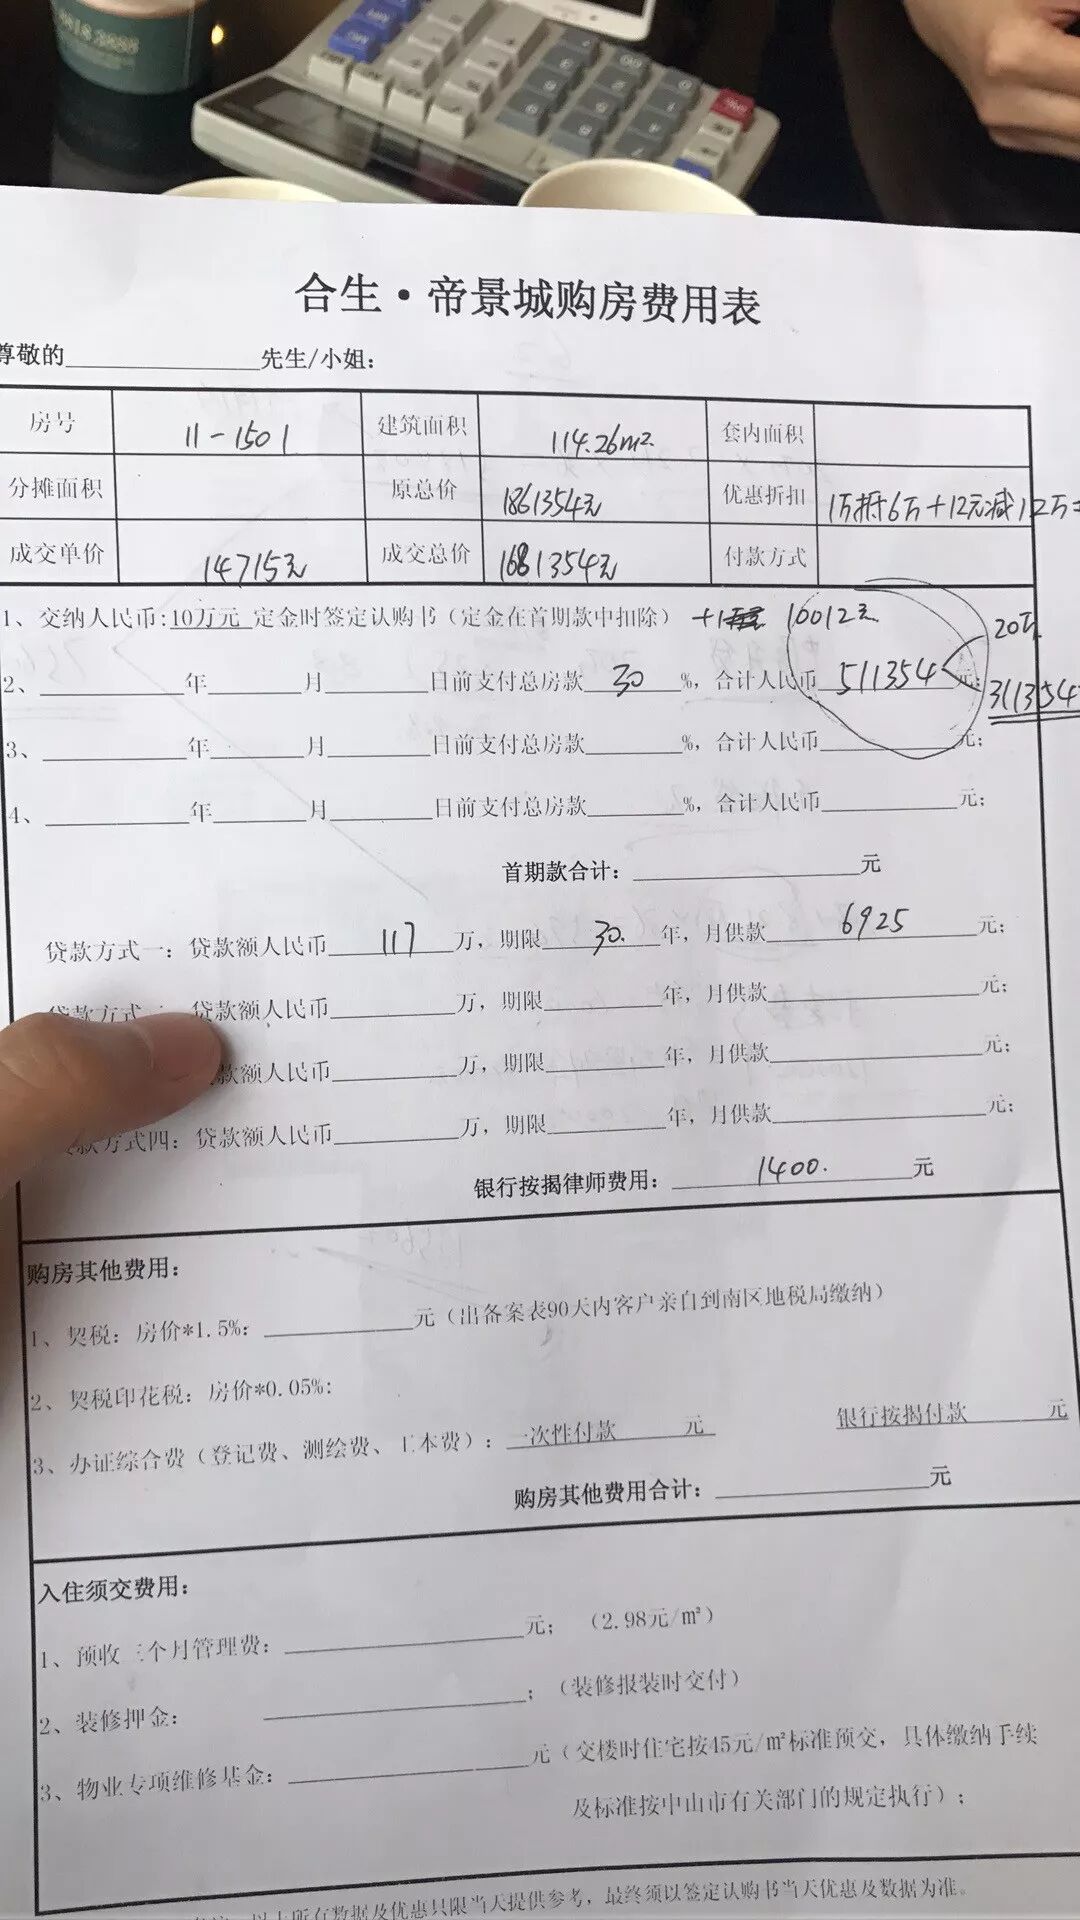 8818 3888
合生·帝景城购房费用表
尊敬的 先生/小姐:
房号 11-1501 建筑面积 114.26m² 套内面积
分摊面积 原总价 1861354元 优惠折扣 1万抵6万+12元减12万
成交单价 14715元 成交总价 1681354元 付款方式
1、交纳人民币:10万元 定金时签定认购书(定金在首期款中扣除) 10012元
20万
2、 年 月 日前支付总房款 30 %, 合计人民币 511354 元;
311354
3、 年 月 日前支付总房款 %, 合计人民币 元;
4、 年 月 日前支付总房款 %, 合计人民币 元;
首期款合计: 元
贷款方式一: 贷款额人民币 117 万, 期限 30. 年, 月供款 6925 元;
贷款方式 贷款额人民币 万, 期限 年, 月供款 元;
款额人民币 万, 期限 年, 月供款 元;
款方式四: 贷款额人民币 万, 期限 年, 月供款 元;
银行按揭律师费用: 1400. 元
购房其他费用:
1、契税: 房价*1.5%: 元(出备案表90天内客户亲自到南区地税局缴纳)
2、契税印花税: 房价*0.05%:
3、办证综合费(登记费、测绘费、工本费): 一次性付款 元 银行按揭付款 元
购房其他费用合计: 元
入住须交费用:
1、预收三个月管理费: 元; (2.98元/㎡)
2、装修押金: ; (装修报装时交付)
3、物业专项维修基金: 元(交楼时住宅按45元/㎡标准预交, 具体缴纳手续
及标准按中山市有关部门的规定执行);
以上所有数据及优惠只限当天提供参考, 最终须以签定认购书当天优惠及数据为准。